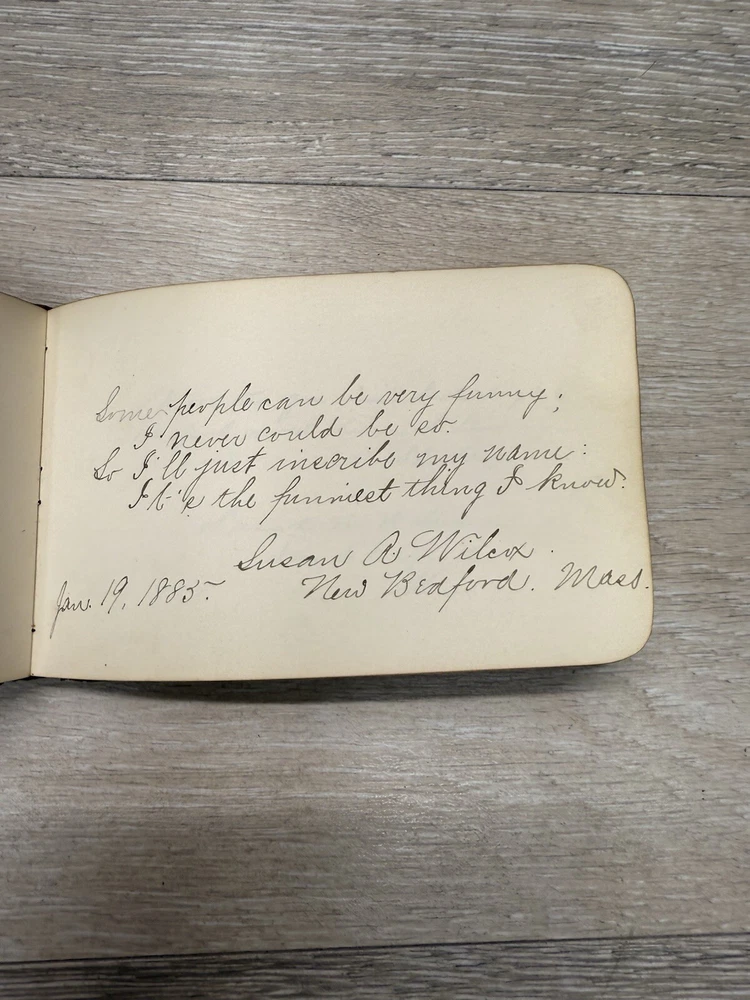 Some people can be very funny;
I never could be so.
So I'll just inscribe my name:
It's the funniest thing I know.
Susan A. Wilcox.
Jan. 19, 1885. New Bedford. Mass.